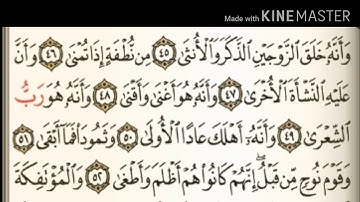 Made with KINEMASTER
وَأَنَّهُۥ خَلَقَ ٱلزَّوْجَيْنِ ٱلذَّكَرَ وَٱلْأُنثَىٰ ٤٥ مِن نُّطْفَةٍ إِذَا تُمْنَىٰ ٤٦ وَأَنَّ
عَلَيْهِ ٱلنَّشْأَةَ ٱلْأُخْرَىٰ ٤٧ وَأَنَّهُۥ هُوَ أَغْنَىٰ وَأَقْنَىٰ ٤٨ وَأَنَّهُۥ هُوَ رَبُّ
ٱلشِّعْرَىٰ ٤٩ وَأَنَّهُۥٓ أَهْلَكَ عَادًا ٱلْأُولَىٰ ٥٠ وَثَمُودَا۟ فَمَآ أَبْقَىٰ ٥١
وَقَوْمَ نُوحٍ مِّن قَبْلُ ۖ إِنَّهُمْ كَانُوا۟ هُمْ أَظْلَمَ وَأَطْغَىٰ ٥٢ وَٱلْمُؤْتَفِكَةَ